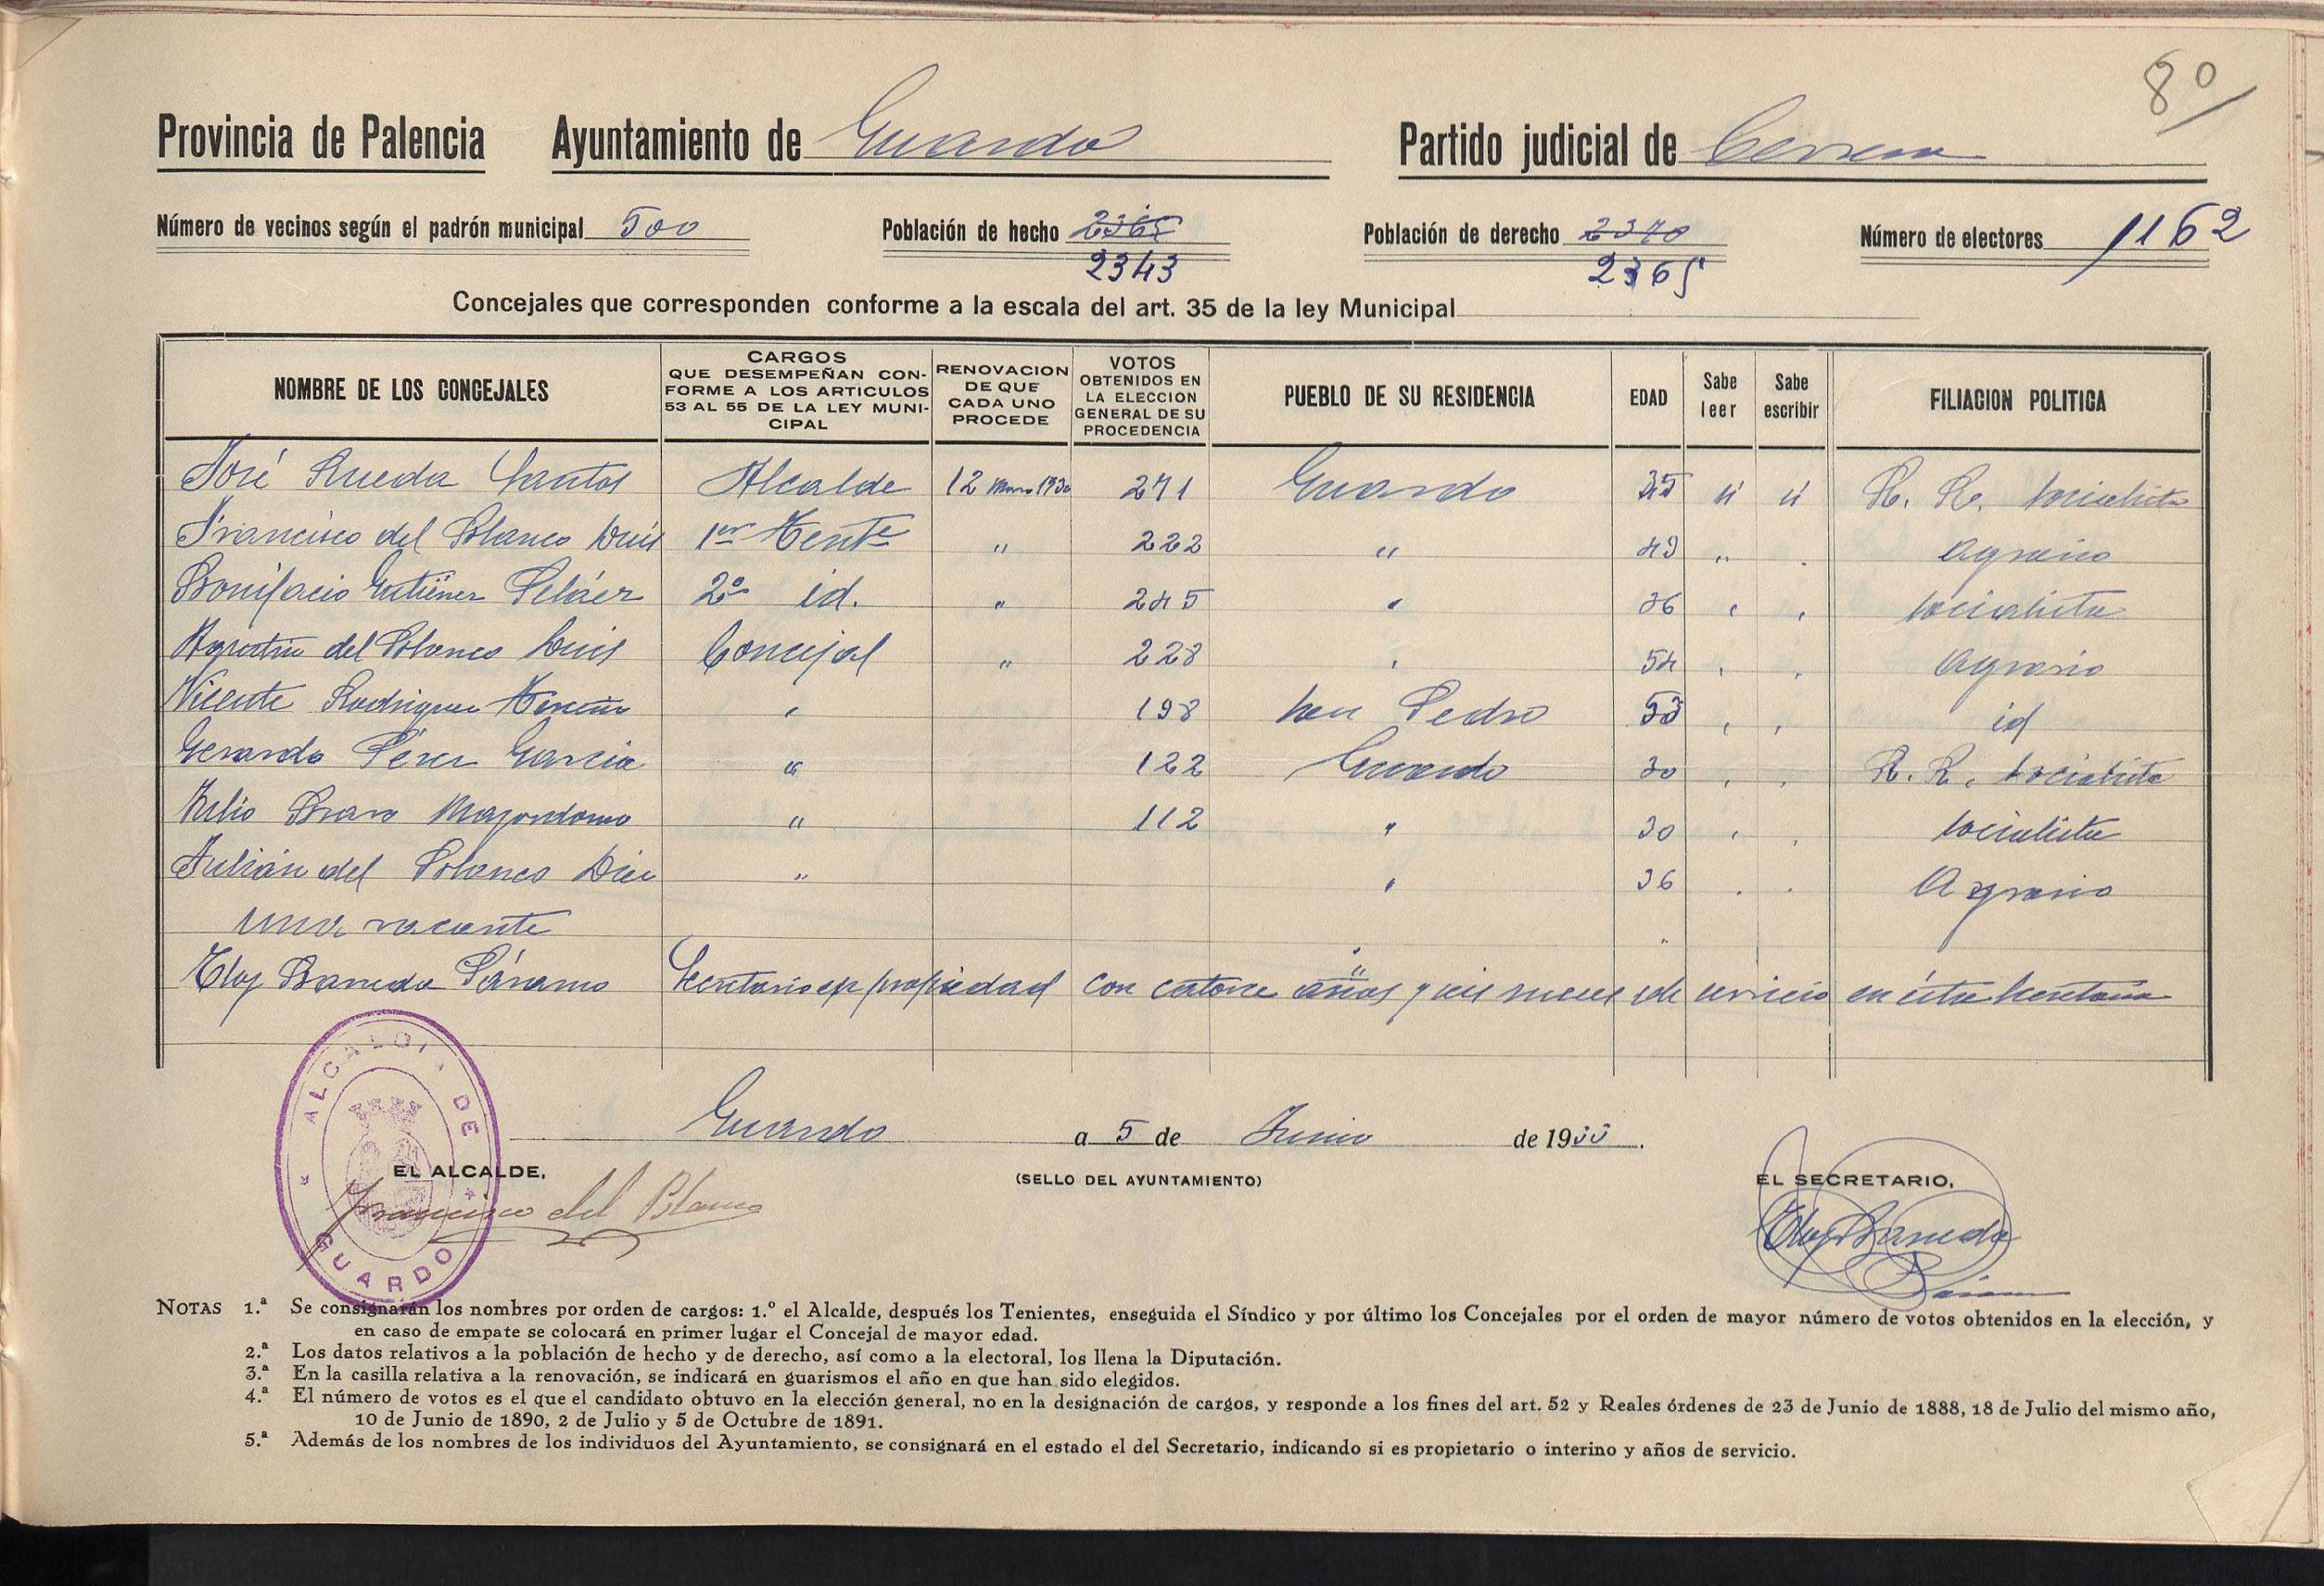 80
Provincia de Palencia Ayuntamiento de Guardo Partido judicial de Cervera
Número de vecinos según el padrón municipal 500 Población de hecho 2365 Población de derecho 2370 Número de electores 1162
2343 2365
Concejales que corresponden conforme a la escala del art. 35 de la ley Municipal
NOMBRE DE LOS CONCEJALES
CARGOS
QUE DESEMPEÑAN CON-
FORME A LOS ARTICULOS
53 AL 55 DE LA LEY MUNI-
CIPAL
RENOVACION
DE QUE
CADA UNO
PROCEDE
VOTOS
OBTENIDOS EN
LA ELECCION
GENERAL DE SU
PROCEDENCIA
PUEBLO DE SU RESIDENCIA
EDAD
Sabe
leer
Sabe
escribir
FILIACION POLITICA
José Rueda Santos Alcalde 12 271 Guardo 35 si si R. R. socialista
Francisco del Blanco Luis 1er Tente " 222 " 49 " . Agrario
Bonifacio Gutiérrez Peláez 2º id. " 245 " 36 " " socialista
Agustín del Blanco Luis Concejal " 228 " 54 " " Agrario
Vicente Rodriguez " 198 San Pedro 53 " " id
Gerardo Pérez García " 122 Guardo 30 " " R. R. socialista
Julio Bravo Mayordomo " 112 " 30 " " socialista
Julián del Blanco Diez " " 36 " " Agrario
una vacante " "
Eloy Barreda Páramo Secretario en propiedad con catorce años y seis meses de servicio en ésta Secretaria
ALCALDIA DE GUARDO
Guardo a 5 de Junio de 1933.
EL ALCALDE, (SELLO DEL AYUNTAMIENTO) EL SECRETARIO,
Francisco del Blanco Eloy Barreda
Páramo
NOTAS 1.ª Se consignarán los nombres por orden de cargos: 1.º el Alcalde, después los Tenientes, enseguida el Síndico y por último los Concejales por el orden de mayor número de votos obtenidos en la elección, y
en caso de empate se colocará en primer lugar el Concejal de mayor edad.
2.ª Los datos relativos a la población de hecho y de derecho, así como a la electoral, los llena la Diputación.
3.ª En la casilla relativa a la renovación, se indicará en guarismos el año en que han sido elegidos.
4.ª El número de votos es el que el candidato obtuvo en la elección general, no en la designación de cargos, y responde a los fines del art. 52 y Reales órdenes de 23 de Junio de 1888, 18 de Julio del mismo año,
10 de Junio de 1890, 2 de Julio y 5 de Octubre de 1891.
5.ª Además de los nombres de los individuos del Ayuntamiento, se consignará en el estado el del Secretario, indicando si es propietario o interino y años de servicio.